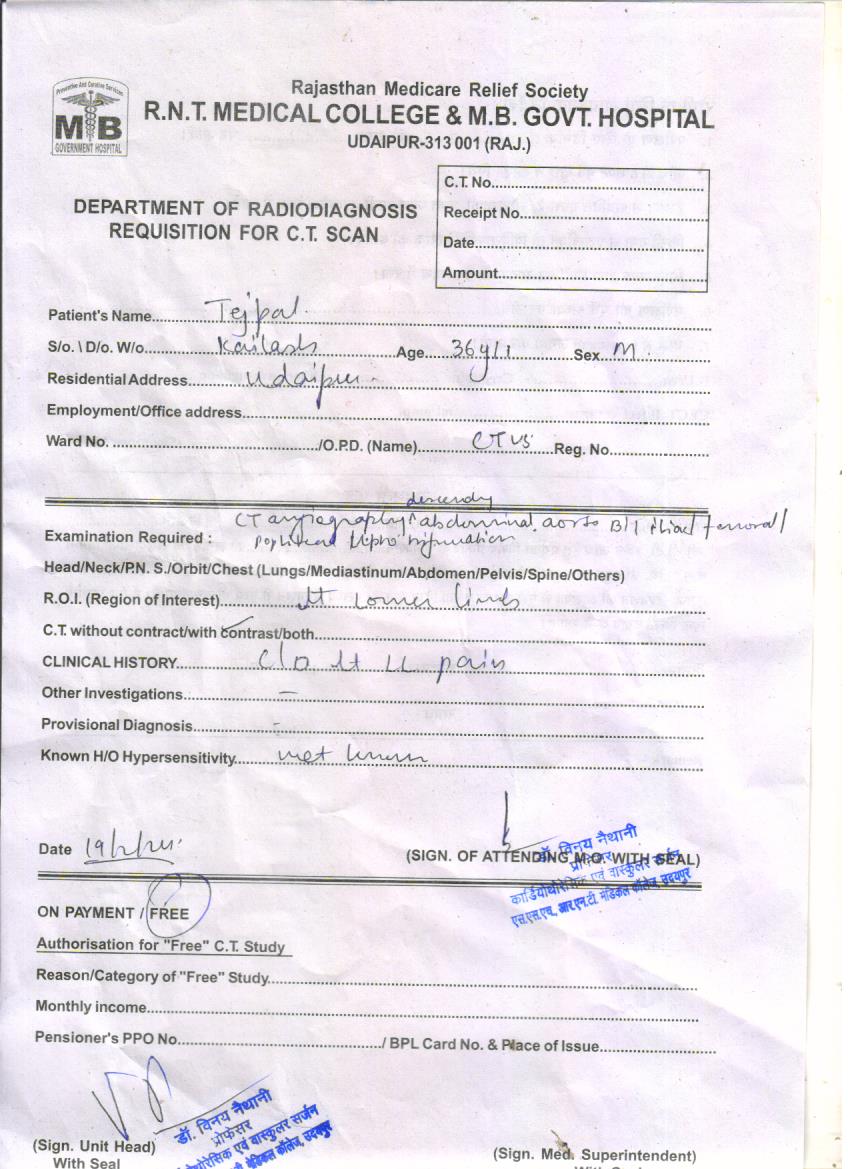 Preventive And Curative Services
MB
GOVERNMENT HOSPITAL
Rajasthan Medicare Relief Society
R.N.T. MEDICAL COLLEGE & M.B. GOVT. HOSPITAL
UDAIPUR-313 001 (RAJ.)
DEPARTMENT OF RADIODIAGNOSIS
REQUISITION FOR C.T. SCAN
C.T. No.
Receipt No.
Date
Amount
Patient's Name Tejpal
S/o. \ D/o. W/o. Kailash Age 36 y Sex M
Residential Address Udaipur
Employment/Office address
Ward No. /O.P.D. (Name) CTVS Reg. No.
Examination Required : CT angiography abdominal aorta B/l iliac/femoral/
popliteal
Head/Neck/P.N. S./Orbit/Chest (Lungs/Mediastinum/Abdomen/Pelvis/Spine/Others)
R.O.I. (Region of Interest) lt lower limb
C.T. without contract/with contrast/both
CLINICAL HISTORY C/O lt LL pain
Other Investigations –
Provisional Diagnosis –
Known H/O Hypersensitivity not known
Date
(SIGN. OF ATTENDING M.O. WITH SEAL)
डॉ. विनय नैथानी
प्रोफेसर
कार्डियोथोरेसिक एवं वास्कुलर सर्जन
एस.एस.एच., आर.एन.टी. मेडिकल कॉलेज, उदयपुर
ON PAYMENT / FREE
Authorisation for "Free" C.T. Study
Reason/Category of "Free" Study
Monthly income
Pensioner's PPO No. / BPL Card No. & Place of Issue
डॉ. विनय नैथानी
प्रोफेसर
एवं वास्कुलर सर्जन
मेडिकल कॉलेज, उदयपुर
(Sign. Unit Head)
With Seal
(Sign. Med. Superintendent)